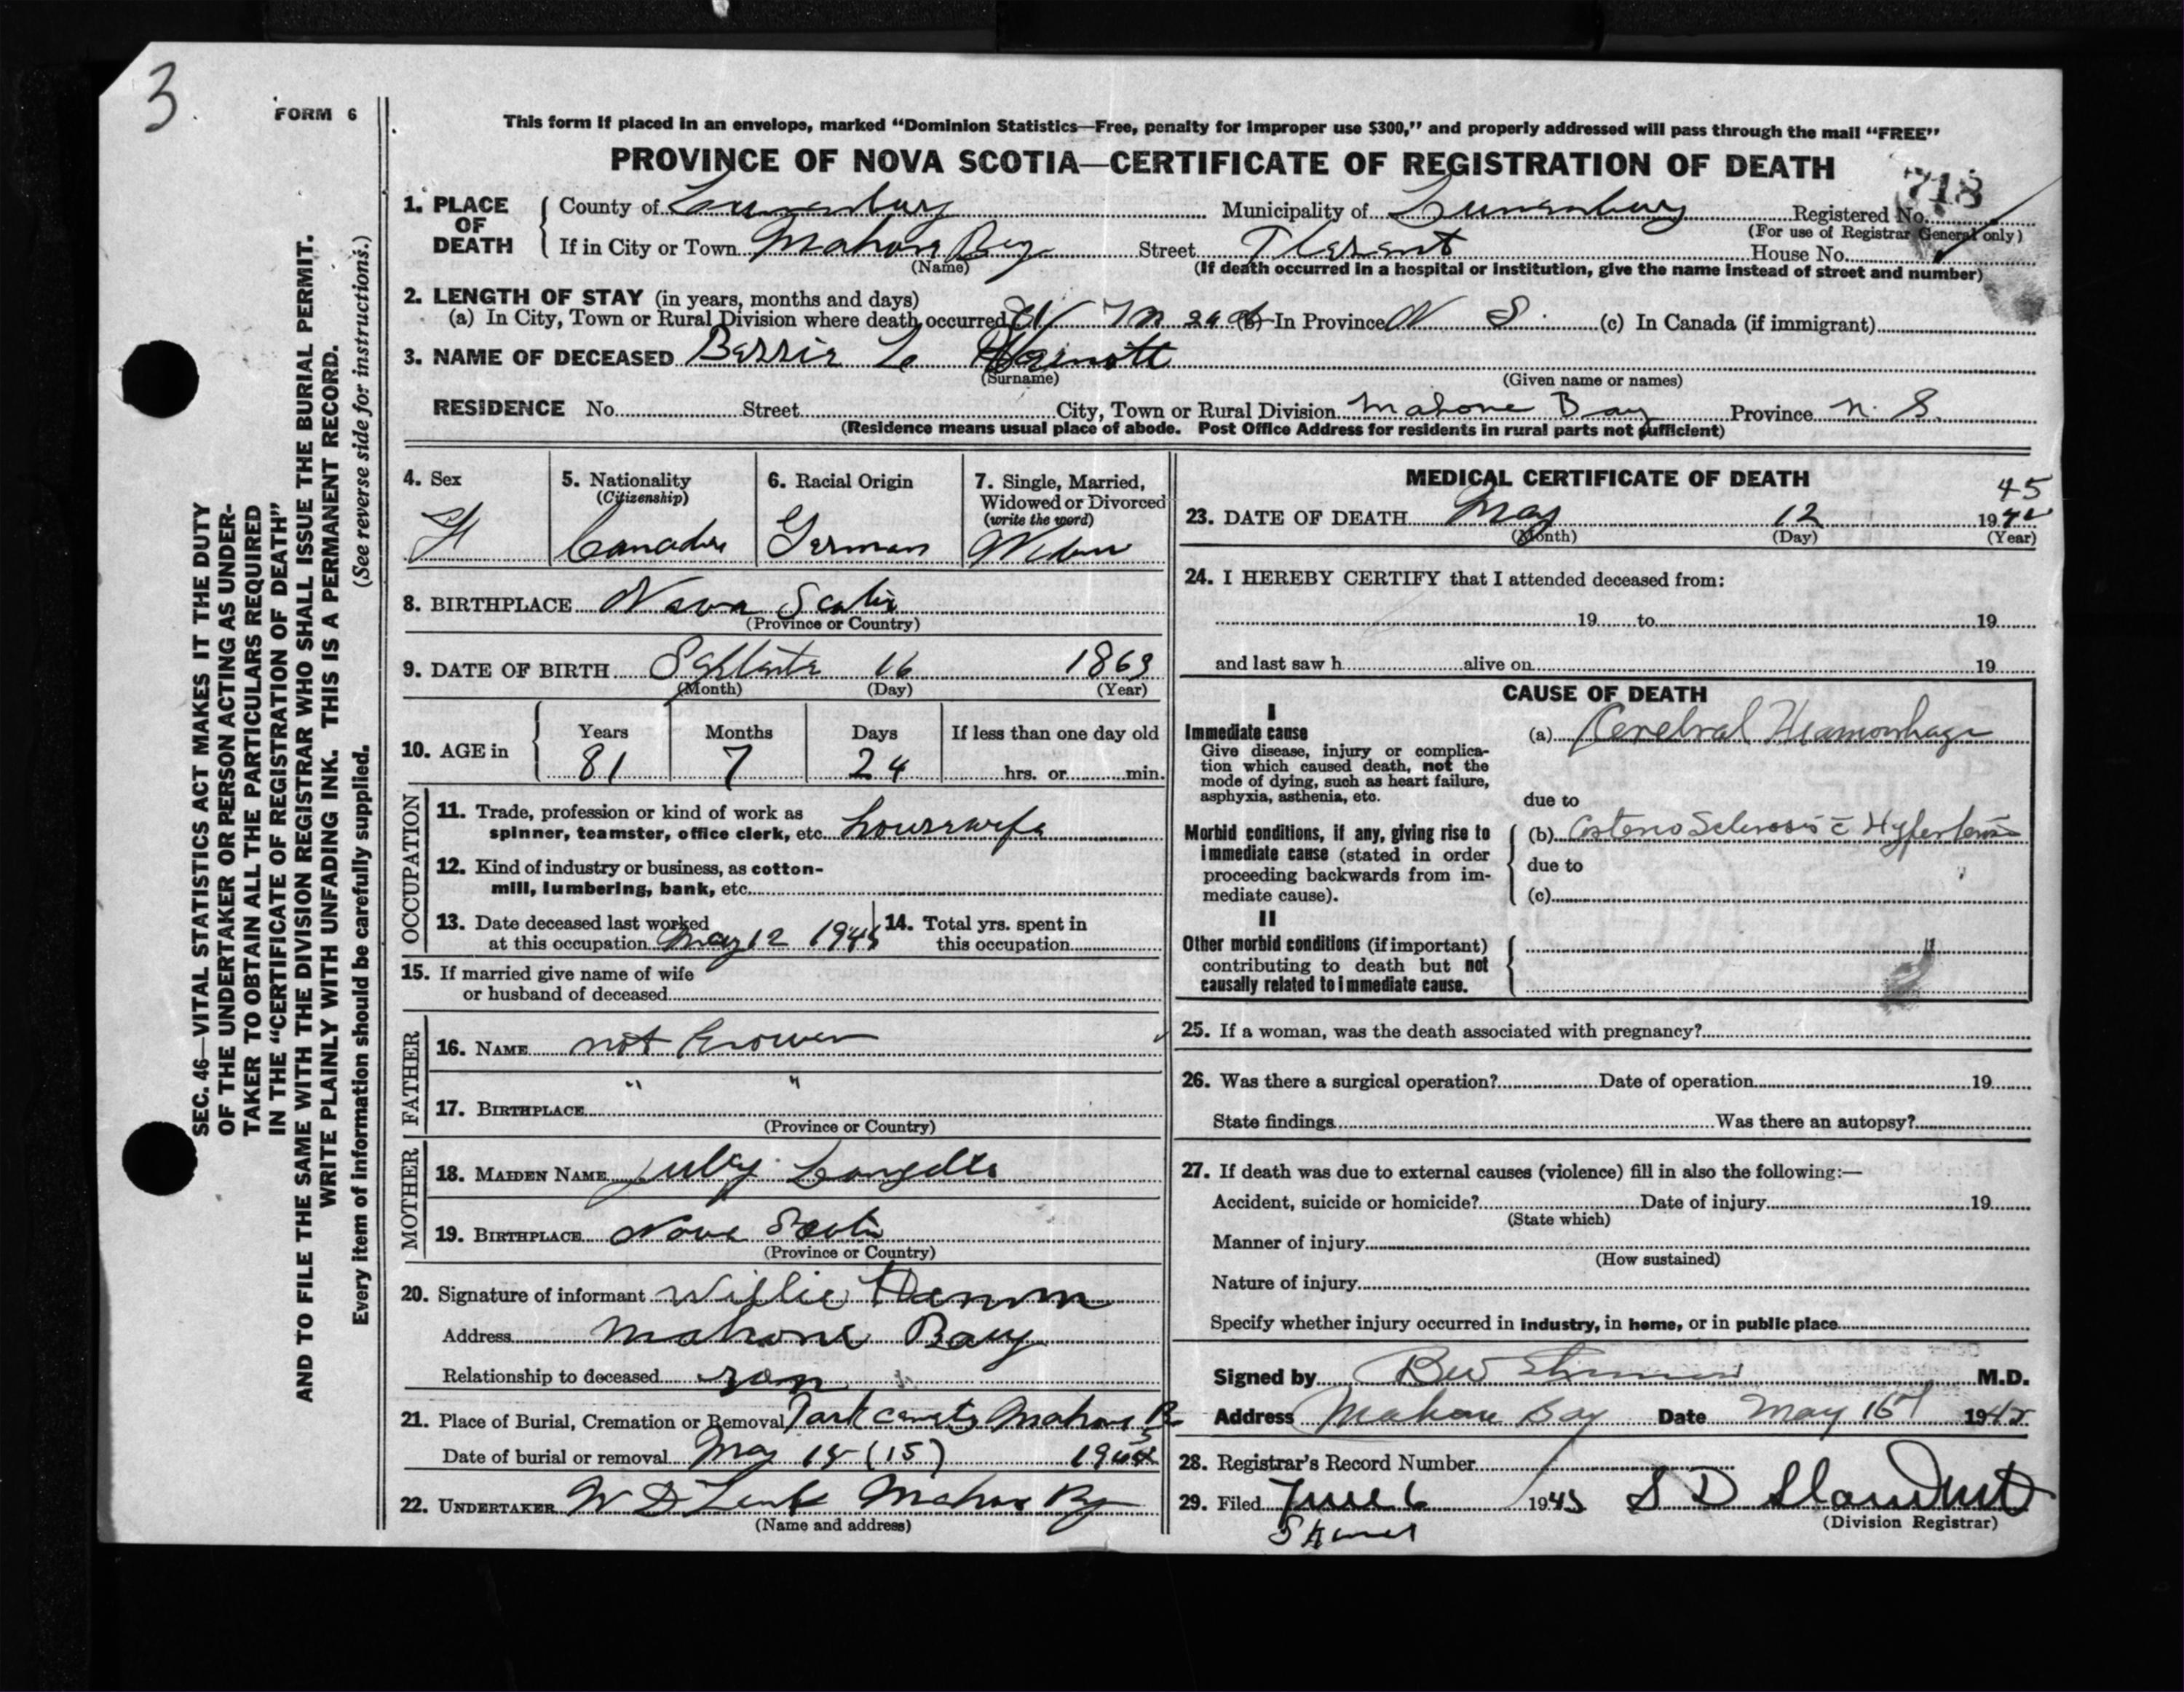 3
FORM 6
This form if placed in an envelope, marked “Dominion Statistics—Free, penalty for improper use $300,” and properly addressed will pass through the mail “FREE”
PROVINCE OF NOVA SCOTIA—CERTIFICATE OF REGISTRATION OF DEATH
718
1. PLACE OF DEATH
County of Lunenburg Municipality of Lunenburg Registered No.
(For use of Registrar General only)
If in City or Town Mahone Bay Street House No.
(Name)
(If death occurred in a hospital or institution, give the name instead of street and number)
2. LENGTH OF STAY (in years, months and days)
(a) In City, Town or Rural Division where death occurred 81 7 m 24 d (b) In Province N S. (c) In Canada (if immigrant)
3. NAME OF DECEASED Bessie
(Surname) (Given name or names)
RESIDENCE No. Street City, Town or Rural Division Mahone Bay Province N. S.
(Residence means usual place of abode. Post Office Address for residents in rural parts not sufficient)
4. Sex F
5. Nationality (Citizenship) Canadian
6. Racial Origin German
7. Single, Married, Widowed or Divorced (write the word) Widow
8. BIRTHPLACE Nova Scotia
(Province or Country)
9. DATE OF BIRTH 16 1863
(Month) (Day) (Year)
10. AGE in
Years Months Days If less than one day old
81 7 24 hrs. or min.
OCCUPATION
11. Trade, profession or kind of work as
spinner, teamster, office clerk, etc. housewife
12. Kind of industry or business, as cotton-
mill, lumbering, bank, etc.
13. Date deceased last worked
at this occupation May 12 1945
14. Total yrs. spent in
this occupation
15. If married give name of wife
or husband of deceased
FATHER
16. NAME not known
17. BIRTHPLACE " "
(Province or Country)
MOTHER
18. MAIDEN NAME
19. BIRTHPLACE Nova Scotia
(Province or Country)
20. Signature of informant Willie Hamm
Address Mahone Bay
Relationship to deceased son
21. Place of Burial, Cremation or Removal Park Mahone B
Date of burial or removal May 15 (15) 1945
22. UNDERTAKER W D Mahone Bay
(Name and address)
MEDICAL CERTIFICATE OF DEATH
45
23. DATE OF DEATH May 12 19
(Month) (Day) (Year)
24. I HEREBY CERTIFY that I attended deceased from:
19 to 19
and last saw h alive on 19
CAUSE OF DEATH
I
Immediate cause
Give disease, injury or complica-
tion which caused death, not the
mode of dying, such as heart failure,
asphyxia, asthenia, etc.
(a) Cerebral Hemorrhage
due to
Morbid conditions, if any, giving rise to
immediate cause (stated in order
proceeding backwards from im-
mediate cause).
(b) Arterio Sclerosis c̄ Hypertension
due to
(c)
II
Other morbid conditions (if important)
contributing to death but not
causally related to immediate cause.
25. If a woman, was the death associated with pregnancy?
26. Was there a surgical operation? Date of operation 19
State findings Was there an autopsy?
27. If death was due to external causes (violence) fill in also the following:—
Accident, suicide or homicide? Date of injury 19
(State which)
Manner of injury
(How sustained)
Nature of injury
Specify whether injury occurred in industry, in home, or in public place
Signed by M.D.
Address Mahone Bay Date May 194
28. Registrar's Record Number
29. Filed June 6 1945 S D
(Division Registrar)
SEC. 46—VITAL STATISTICS ACT MAKES IT THE DUTY
OF THE UNDERTAKER OR PERSON ACTING AS UNDER-
TAKER TO OBTAIN ALL THE PARTICULARS REQUIRED
IN THE “CERTIFICATE OF REGISTRATION OF DEATH”
AND TO FILE THE SAME WITH THE DIVISION REGISTRAR WHO SHALL ISSUE THE BURIAL PERMIT.
WRITE PLAINLY WITH UNFADING INK. THIS IS A PERMANENT RECORD.
Every item of information should be carefully supplied. (See reverse side for instructions.)